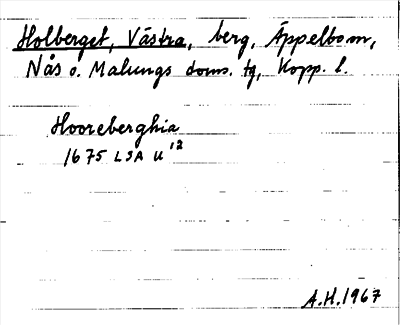 Holberget, Västra, berg, Äppelbom,
Nås o. Malungs doms. tg, Kopp. l.
Hooreberghia
1675 LSA U 12
A.H. 1967